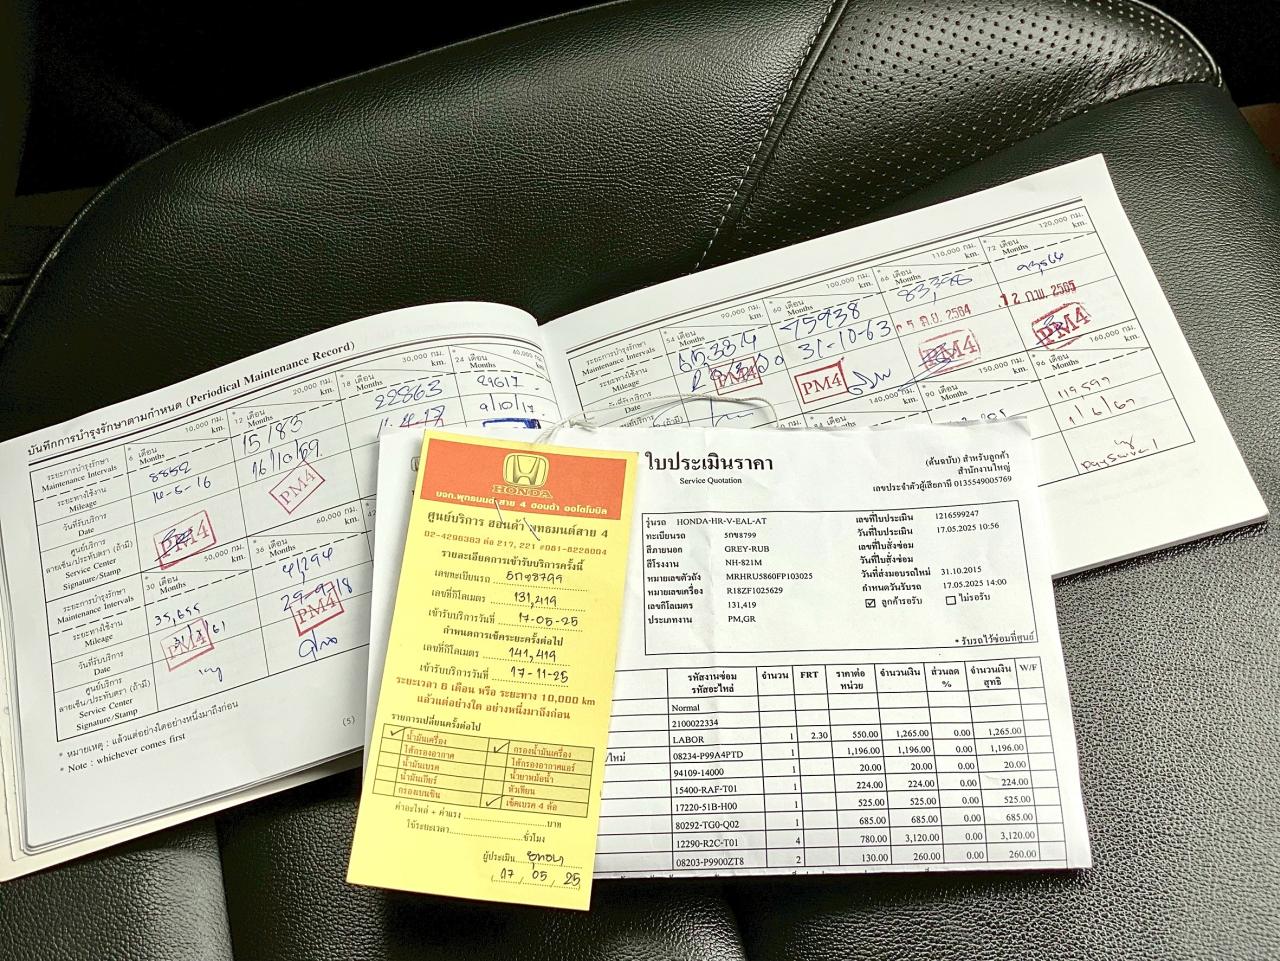 บันทึกการบำรุงรักษาตามกำหนด (Periodical Maintenance Record)
ระยะการบำรุงรักษา
Maintenance Intervals
10,000 กม.
km.
* 6 เดือน
Months
20,000 กม.
km.
* 12 เดือน
Months
30,000 กม.
km.
* 18 เดือน
Months
40,000 กม.
km.
* 24 เดือน
Months
ระยะทางใช้งาน
Mileage
8852
15183
22863
29617
วันที่รับบริการ
Date
14-5-16
16/10/69
9/10/17
ศูนย์บริการ
ลายเซ็น/ประทับตรา (ถ้ามี)
Service Center
Signature/Stamp
PM4
PM4
ระยะการบำรุงรักษา
Maintenance Intervals
50,000 กม.
km.
* 30 เดือน
Months
60,000 กม.
km.
* 36 เดือน
Months
ระยะทางใช้งาน
Mileage
35,695
41294
วันที่รับบริการ
Date
PM4
PM4
ศูนย์บริการ
ลายเซ็น/ประทับตรา (ถ้ามี)
Service Center
Signature/Stamp
* หมายเหตุ : แล้วแต่อย่างใดอย่างหนึ่งมาถึงก่อน
* Note : whichever comes first
(5)
ระยะการบำรุงรักษา
Maintenance Intervals
90,000 กม.
km.
* 54 เดือน
Months
100,000 กม.
km.
* 60 เดือน
Months
110,000 กม.
km.
* 66 เดือน
Months
120,000 กม.
km.
* 72 เดือน
Months
ระยะทางใช้งาน
Mileage
65384
75938
83,396
วันที่รับบริการ
Date
31-10-63
12 ก.พ. 2565
PM4
PM4
PM4
PM4
140,000 กม.
150,000 กม.
km.
* 90 เดือน
Months
160,000 กม.
km.
* 96 เดือน
Months
119597
1/6/67
HONDA
บจก.พุทธมนต์ สาย 4 ฮอนด้า ออโตโมบิล
ศูนย์บริการ ฮอนด้า พุทธมนต์สาย 4
02-4296363 ต่อ 217, 221 #061-8228004
รายละเอียดการเข้ารับบริการครั้งนี้
เลขทะเบียนรถ 5กข8799
เลขที่กิโลเมตร 131,419
เข้ารับบริการวันที่ 17-05-25
กำหนดการเช็คระยะครั้งต่อไป
เลขที่กิโลเมตร 141,419
เข้ารับบริการวันที่ 17-11-25
ระยะเวลา 6 เดือน หรือ ระยะทาง 10,000 km
แล้วแต่อย่างใด อย่างหนึ่งมาถึงก่อน
รายการเปลี่ยนครั้งต่อไป
✓ น้ำมันเครื่อง ✓ กรองน้ำมันเครื่อง
ไส้กรองอากาศ ไส้กรองอากาศแอร์
น้ำมันเบรค น้ำยาหม้อน้ำ
น้ำมันเกียร์ หัวเทียน
กรองเบนซิน ✓ เช็คเบรค 4 ล้อ
ค่าอะไหล่ + ค่าแรง บาท
ใช้ระยะเวลา ชั่วโมง
ผู้ประเมิน
( 17 / 05 / 25 )
ใบประเมินราคา
Service Quotation
(ต้นฉบับ) สำหรับลูกค้า
สำนักงานใหญ่
เลขประจำตัวผู้เสียภาษี 0135549005769
รุ่นรถ HONDA-HR-V-EAL-AT เลขที่ใบประเมิน 1216599247
ทะเบียนรถ 5กข8799 วันที่ใบประเมิน 17.05.2025 10:56
สีภายนอก GREY-RUB เลขที่ใบสั่งซ่อม
สีโรงงาน NH-821M วันที่ใบสั่งซ่อม
หมายเลขตัวถัง MRHRU5860FP103025 วันที่ส่งมอบรถใหม่ 31.10.2015
หมายเลขเครื่อง R18ZF1025629 กำหนดวันรับรถ 17.05.2025 14:00
เลขกิโลเมตร 131,419 ☑ ลูกค้ารอรับ ☐ ไม่รอรับ
ประเภทงาน PM,GR
* รับรถไว้ซ่อมที่ศูนย์
รหัสงานซ่อม รหัสอะไหล่ จำนวน FRT ราคาต่อหน่วย จำนวนเงิน ส่วนลด % จำนวนเงินสุทธิ W/F
Normal
2100022334
LABOR 1 2.30 550.00 1,265.00 0.00 1,265.00
08234-P99A4PTD 1 1,196.00 1,196.00 0.00 1,196.00
94109-14000 1 20.00 20.00 0.00 20.00
15400-RAF-T01 1 224.00 224.00 0.00 224.00
17220-51B-H00 1 525.00 525.00 0.00 525.00
80292-TG0-Q02 1 685.00 685.00 0.00 685.00
12290-R2C-T01 4 780.00 3,120.00 0.00 3,120.00
08203-P9900ZT8 2 130.00 260.00 0.00 260.00